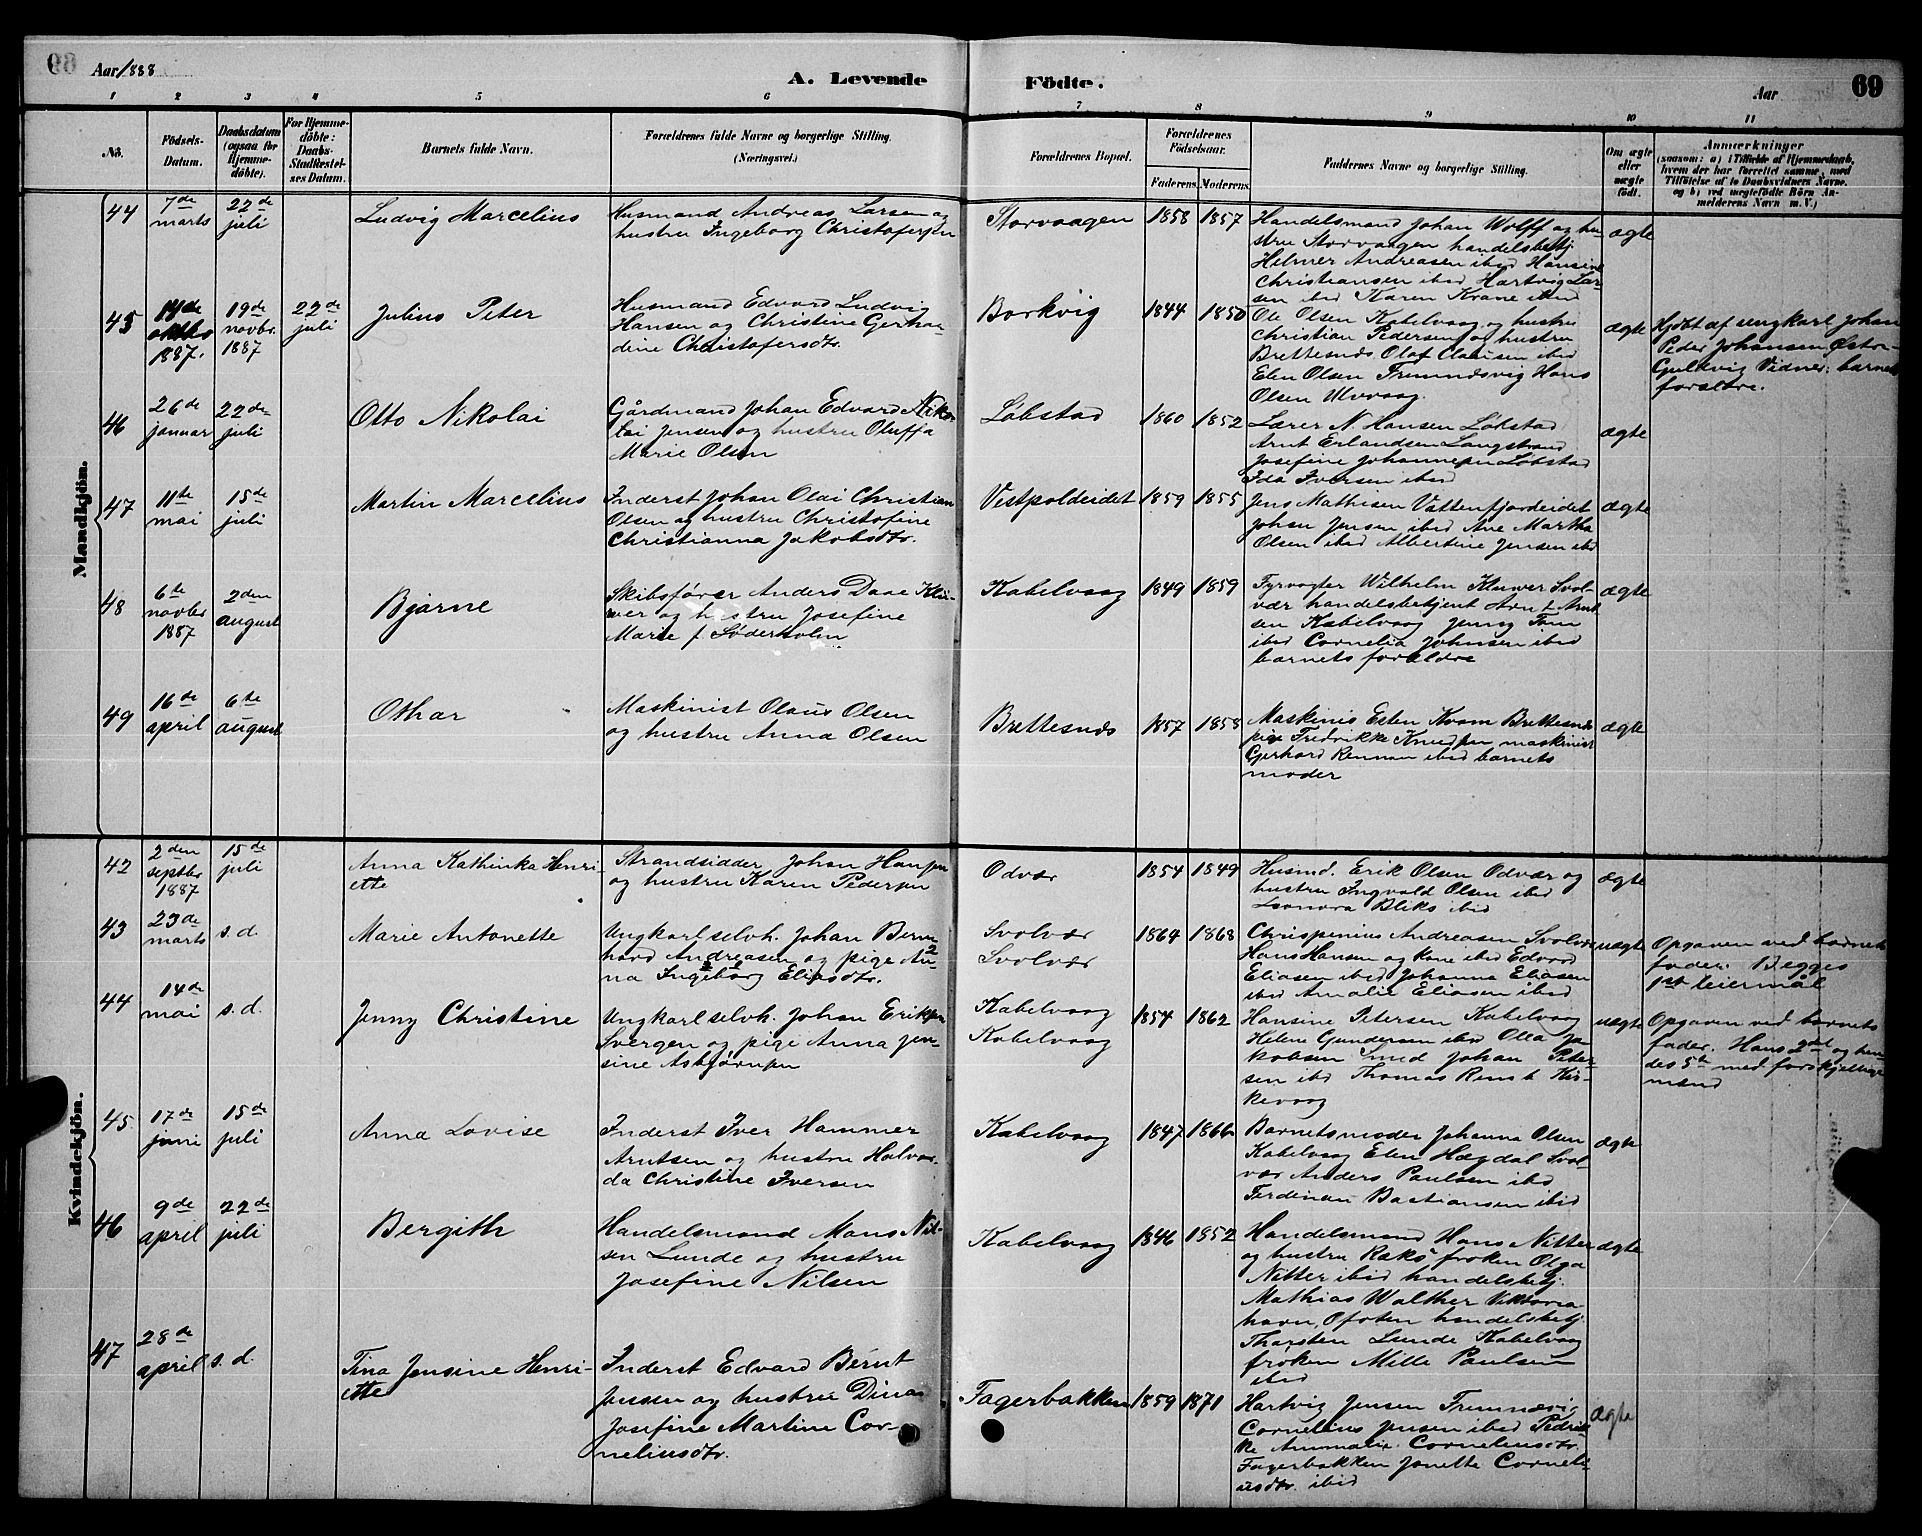 68 Aar 1888
A. Levende
Födte.
Aar 69
1 2 3 4 5 6 7 8 9 10 11
No. Födsels-Datum. Daabsdatum (ogsaa for Hjemmedöbte). For Hjemmedöbte: Daabs-Stadfæstelses Datum. Barnets fulde Navn. Forældrenes fulde Navne og borgerlige Stilling. (Næringsvei.) Forældrenes Bopæl. Forældrenes Födselsaar. Faderens. Moderens. Faddernes Navne og borgerlige Stilling. Om ægte eller uægte födt. Anmærkninger (saasom: a) i Tilfælde af Hjemmedaab, hvem der har forrettet samme, med Tilföielse af to Daabsvidners Navne. og b) ved uægtefödte Börn Anmelderens Navn m. V.)
Mandkjön.
44 7de marts 22de juli Ludvig Marcelius
Husmand Andreas Larsen og
hustru Ingeborg Christofersen
Storvaagen 1858 1857
Handelsmand Johan Wolff og hu-
stru Storvaagen handelsbetj.
Helmer Andreasen ibid Hansine
Christiansen ibid Hartvig Lar-
sen ibid Karen Krane ibid
ægte
45 14de oktbr 1887. 19de novbr. 1887 22de juli Julius Peter
Husmand Edvard Ludvig
Hansen og Christine Gerhar
dine Christofersdtr.
Borkvig 1844 1850
Ole Olsen Kabelvaag og hustru
Christian Pedersen og hustru
Brettesnes Olaf Clausen ibid
Elen Olsen Tremndsvig Hans
Olsen Ulvvaag.
ægte
Hjdbt af ungkarl Johan
Peder Johansen Østre-
Gulbvig Vidner: barnets
forældre.
46 26de januar 22de juli Otto Nikolai
Gårdmand Johan Edvard Niko
lai Jensen og hustru Oluffa
Marie Olsen
Løbstad 1860 1852
Lærer N. Hansen Løkstad
Arnt Erlandsen Langstrand
Josefine Johannesen Løbstad
Ida Iversen ibid
ægte
47 11te mai 15de juli Martin Marcelius
Inderst Johan Olai Christian
Olsen og hustru Christofine
Christianna Jakobsdtr.
Vestpoldeidet 1859 1855
Jens Mathisen Vattenfjordeidet
Johan Jensen ibid Ane Martha
Olsen ibid Albertine Jensen ibid
ægte
48 6te novbr 1887 2den august Bjarne
Skibsfører Anders Daae Klü-
wer og hustru Josefine
Marie f. Søderholm
Kabelvaag 1849 1859
Fyrvogter Wilhelm Kluwer Svol-
vær handelsbetjent Arnt Arnt
sen Kabelvaag Jenny
ibid Cornelia Johnsen ibid
barnets forældre
ægte
49 16de april 6te august Othar
Maskinist Olaus Olsen
og hustru Anna Olsen
Brettesnes 1857 1858
Maskinis Esten Kvam Brettesnes
pige Fredrikke Knudsen maskinist
Gerhard Rennan ibid barnets
moder
ægte
Kvindekjön.
42 2den septbr 1887 15de juli Anna Kathinka Henri-
ette
Strandsidder Johan Hansen
og hustru Karen Pedersen
Odvær 1854 1849
Husmd. Erik Olsen Odvær og
hustru Ingvald Olsen ibid
Leonora Bliks ibid
ægte
43 23de marts s.d. Marie Antonette
Ungkarl selvh. Johan Bern
hard Andreasen og pige An-
na Ingeborg Eliasdtr.
Svolvær
Svolvær
1864 1868
Chrispinius Andreasen Svolvær
Hans Hansen og kone ibid Edvard
Eliasen ibid Johanna Eliasen
ibid Amalie Eliasen ibid
uægte
Opgaven ved barnets
fader. Begges
1ste leiermål
44 14de mai s.d. Jenny Christine
Ungkarl selvh. Johan Eriksen
Svergen og pige Anna Jen-
sine Asbjørnsen
Kabelvaag
Kabelvaag
1854 1862
Hansine Petersen Kabelvaag
Helene Gundersen ibid Olea Ja
kobsen Smed Johan Peter-
sen ibid Thomas Rinst Kir-
kevaag
uægte
Opgaven ved barnets
fader. Hans 2det og hen-
des 5te med forskjellige
mænd
45 17de juni 15de juli Anna Lovise
Inderst Iver Hammer
Arntsen og hustru Halvar-
da Christine Iversen
Kabelvaag 1847 1866
Barnets moder Johanna Olsen
Kabelvaag Elen Hægdal Svol-
vær Anders Paulsen ibid
Ferdinan Bastiansen ibid
ægte
46 9de april 22de juli Bergith
Handelsmand Mons Nil-
sen Lunde og hustru
Josefine Nilsen
Kabelvaag 1846 1852
Handelsmand Hans Nitter
og hustru Raks frøken Olga
Nitter ibid handelsbetj.
Mathias Walther Viktoria
havn, Ofoten handelsbetj.
Thorsten Lunde Kabelvaag
frøken Mille Paulsen
ibid
ægte
47 28de april s.d. Tina Jensine Henri-
ette
Inderst Edvard Bernt
Jensen og hustru Dina
Josefine Martine Cor-
neliusdtr.
Fagerbakken 1859 1871
Hartvig Jensen Tremnævig
Cornelius Jensen ibid Pedrik
ke Annmarie Corneliusdtr.
Fagerbakken Jonette Corneli-
usdtr. ibid
ægte